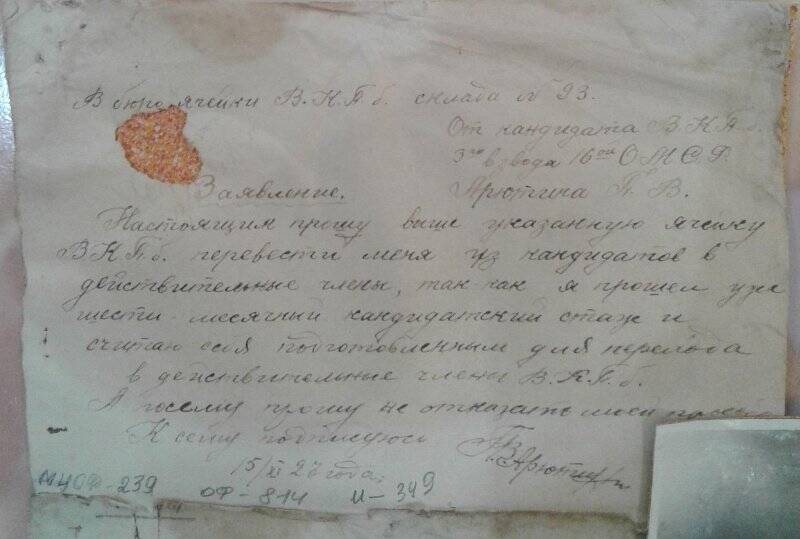 В бюро ячейки В.К.П.б. склада № 93.
От кандидата В.К.П.б.
3го взвода 16ой О.М.С.Р.
Арютина П. В.
Заявление.
Настоящим прошу выше указанную ячейку
В.К.П.б. перевести меня из кандидатов в
действительные члены, так как я прошел уже
шести-месячный кандидатский стаж и
считаю себя подготовленным для перевода
в действительные члены В.К.П.б.
А посему прошу не отказать моей
К сему подписуюсь
15/XI 27 года.
ОФ-814 И-349